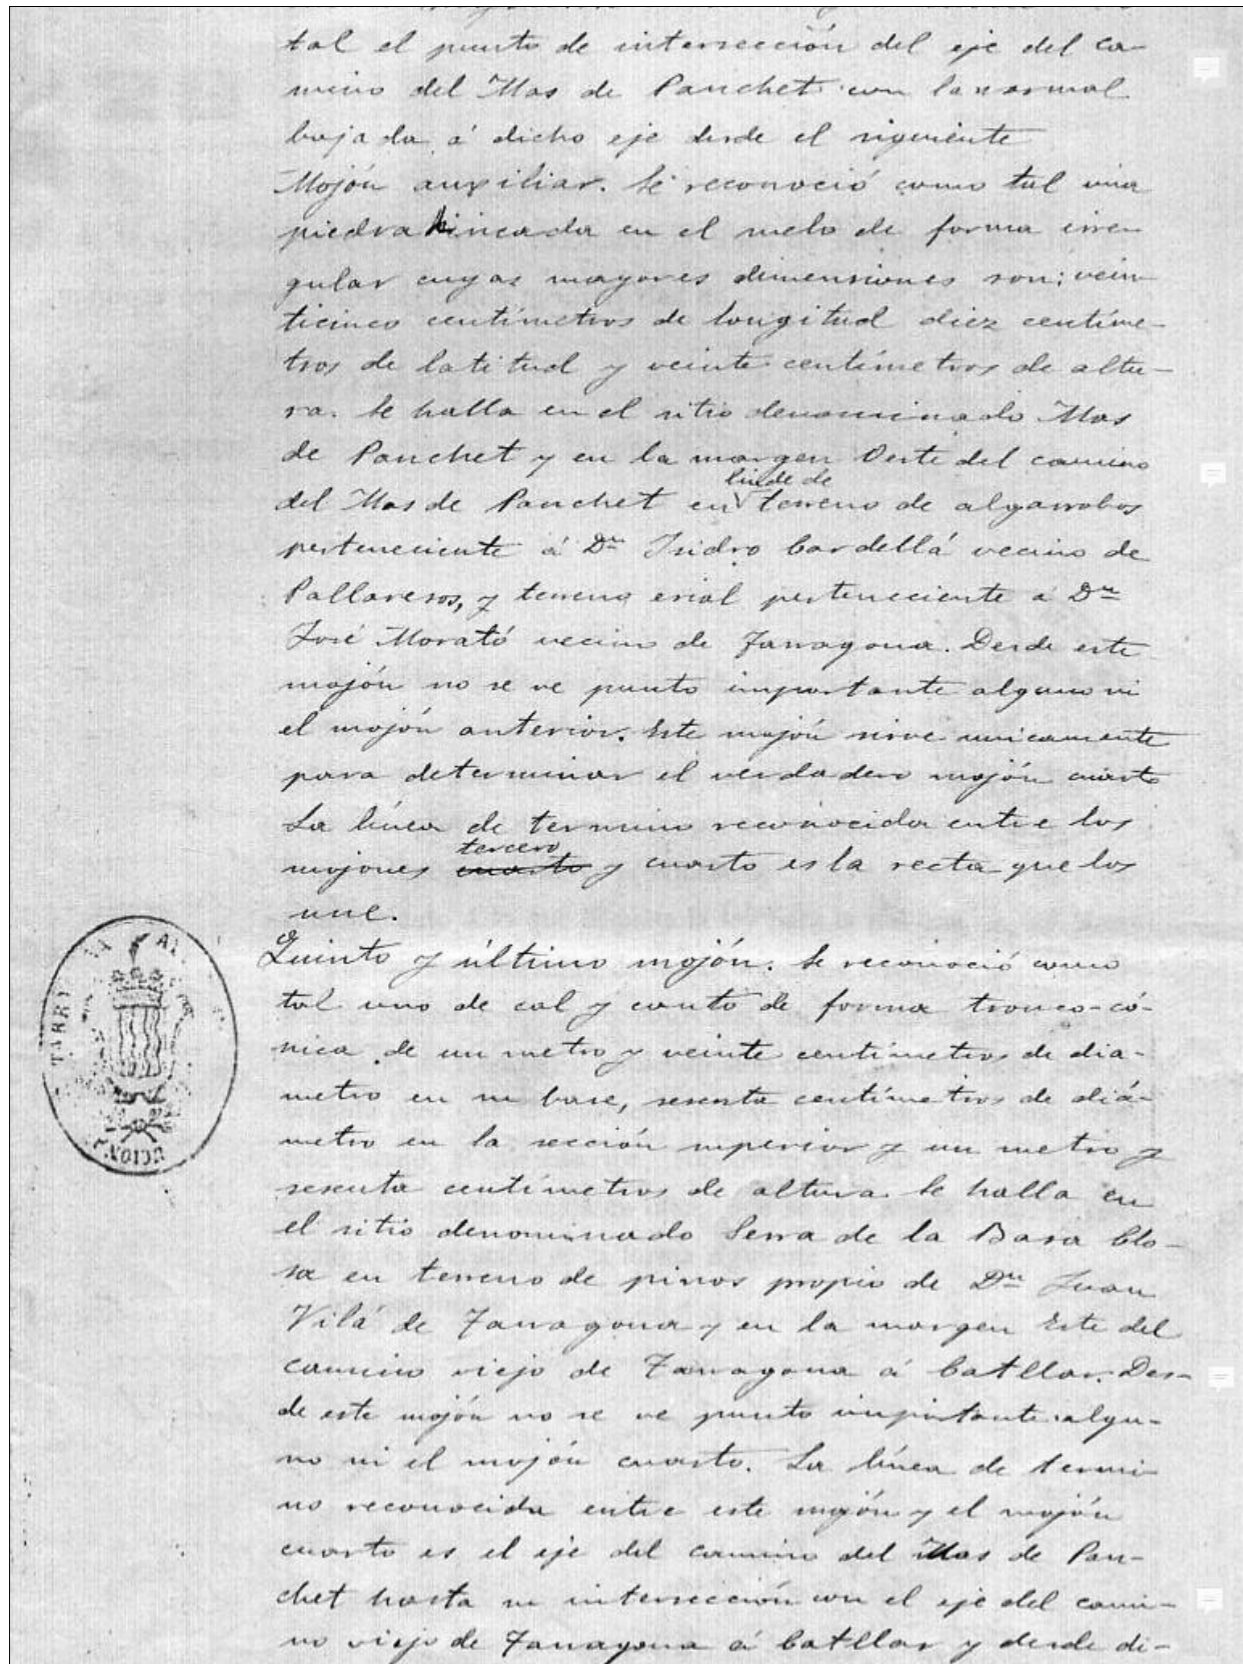 tal el punto de intersección del eje del ca-
mino del Mas de Panchet con la normal
bajada á dicho eje desde el siguiente
Mojón auxiliar. Se reconoció como tal una
piedra hincada en el suelo de forma irre-
gular cuyas mayores dimensiones son: vein-
ticinco centímetros de longitud diez centíme-
tros de latitud y veinte centímetros de altu-
ra. Se halla en el sitio denominado Mas
de Panchet y en la margen Oeste del camino
linde de
del Mas de Panchet en terreno de algarrobos
perteneciente á Dn Isidro Cardellá vecino de
Pallaresos, y terreno erial perteneciente á Dn
José Morató vecino de Tarragona. Desde este
mojón no se ve punto importante alguno ni
el mojón anterior. Este mojón sirve unicamente
para determinar el verdadero mojón cuarto
La línea de termino reconocida entre los
tercero
mojones cuarto y cuarto es la recta que los
une.
Quinto y último mojón. Se reconoció como
tal uno de cal y canto de forma tronco-có-
nica de un metro y veinte centímetros de dia-
metro en su base, sesenta centímetros de diá-
metro en la sección superior y un metro y
sesenta centímetros de altura. Se halla en
el sitio denominado Serra de la Basa Clo-
sa en terreno de pinos propio de Dn Juan
Vilá de Tarragona y en la margen Este del
camino viejo de Tarragona á Catllar. Des-
de este mojón no se ve punto importante algu-
no ni el mojón cuarto. La línea de termi-
no reconocida entre este mojón y el mojón
cuarto es el eje del camino del Mas de Pan-
chet hasta su intersección con el eje del cami-
no viejo de Tarragona á Catllar y desde di-